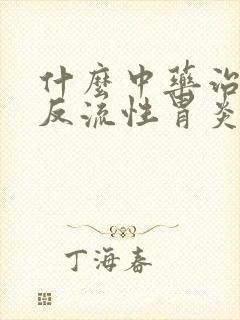 什麼中藥治
反流性胃炎
丁海春